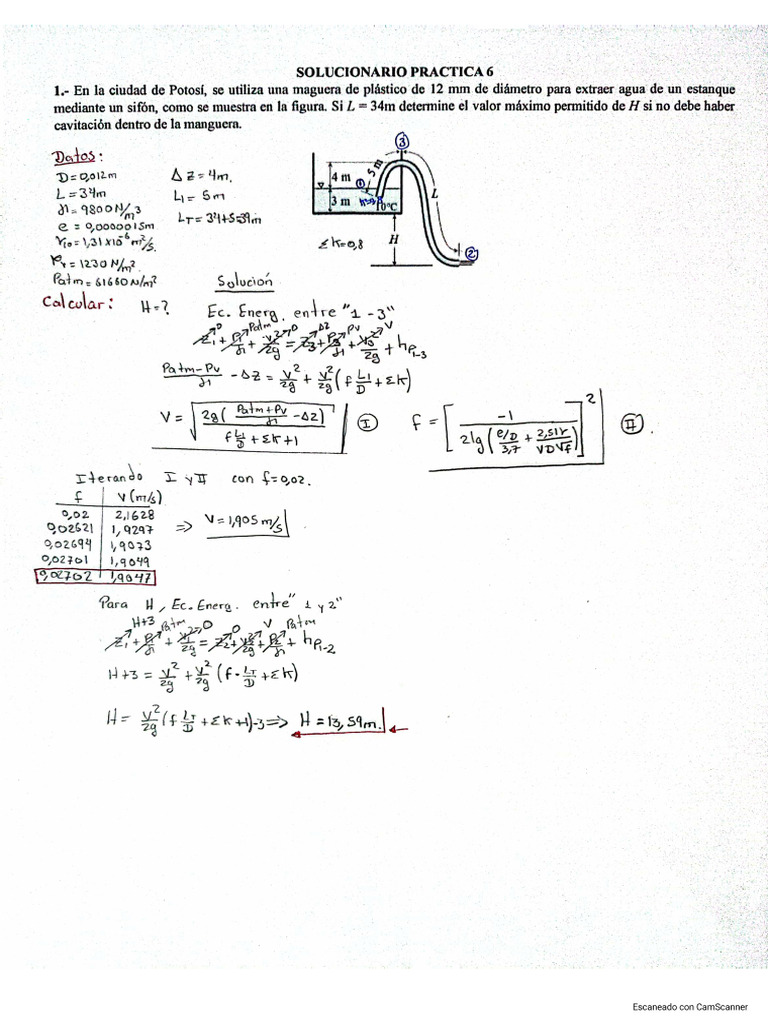 SOLUCIONARIO PRACTICA 6
1.- En la ciudad de Potosí, se utiliza una maguera de plástico de 12 mm de diámetro para extraer agua de un estanque
mediante un sifón, como se muestra en la figura. Si L = 34m determine el valor máximo permitido de H si no debe haber
cavitación dentro de la manguera.
Datos:
D = 0,012m
L = 34m
γ1 = 9800 N/m3
e = 0,0000015m
ν10 = 1,31 x10^-6 m2/s.
Pv = 1230 N/m2.
Patm = 61660 N/m2
Δ Z = 4m.
L1 = 5m
LT = 34+5=39m
4 m
3 m
5 m
1
2
3
K=0,8
10°C
L
H
ΣK=0,8
Calcular: H=?
Solución
Ec. Energ. entre "1 - 3"
Z1 + P1/γ1 + V1²/2g = Z3 + P3/γ1 + V3²/2g + hp1-3
0 Patm 0 ΔZ Pv V
(Patm-Pv)/γ1 - ΔZ = V²/2g + V²/2g (f L1/D + ΣK)
V = √(2g((Patm+Pv)/γ1 - ΔZ) / (f L1/D + ΣK + 1)) I
f = [-1 / (2lg((e/D)/3,7 + 2,51ν/(VD√f)))]² II.
Iterando I y II con f=0,02.
f V(m/s)
0,02 2,1628
0,02621 1,9297
0,02694 1,9073
0,02701 1,9049
0,02702 1,9047
=> V=1,905 m/s
Para H, Ec. Energ. entre "1 y 2"
H+3 Patm 0 0 V Patm
Z1 + P1/γ1 + V1²/2g = Z2 + V2²/2g + P2/γ1 + hp1-2
H+3 = V²/2g + V²/2g (f · LT/D + ΣK)
H = V²/2g (f LT/D + ΣK+1)-3 => H = 13,59m.
Escaneado con CamScanner